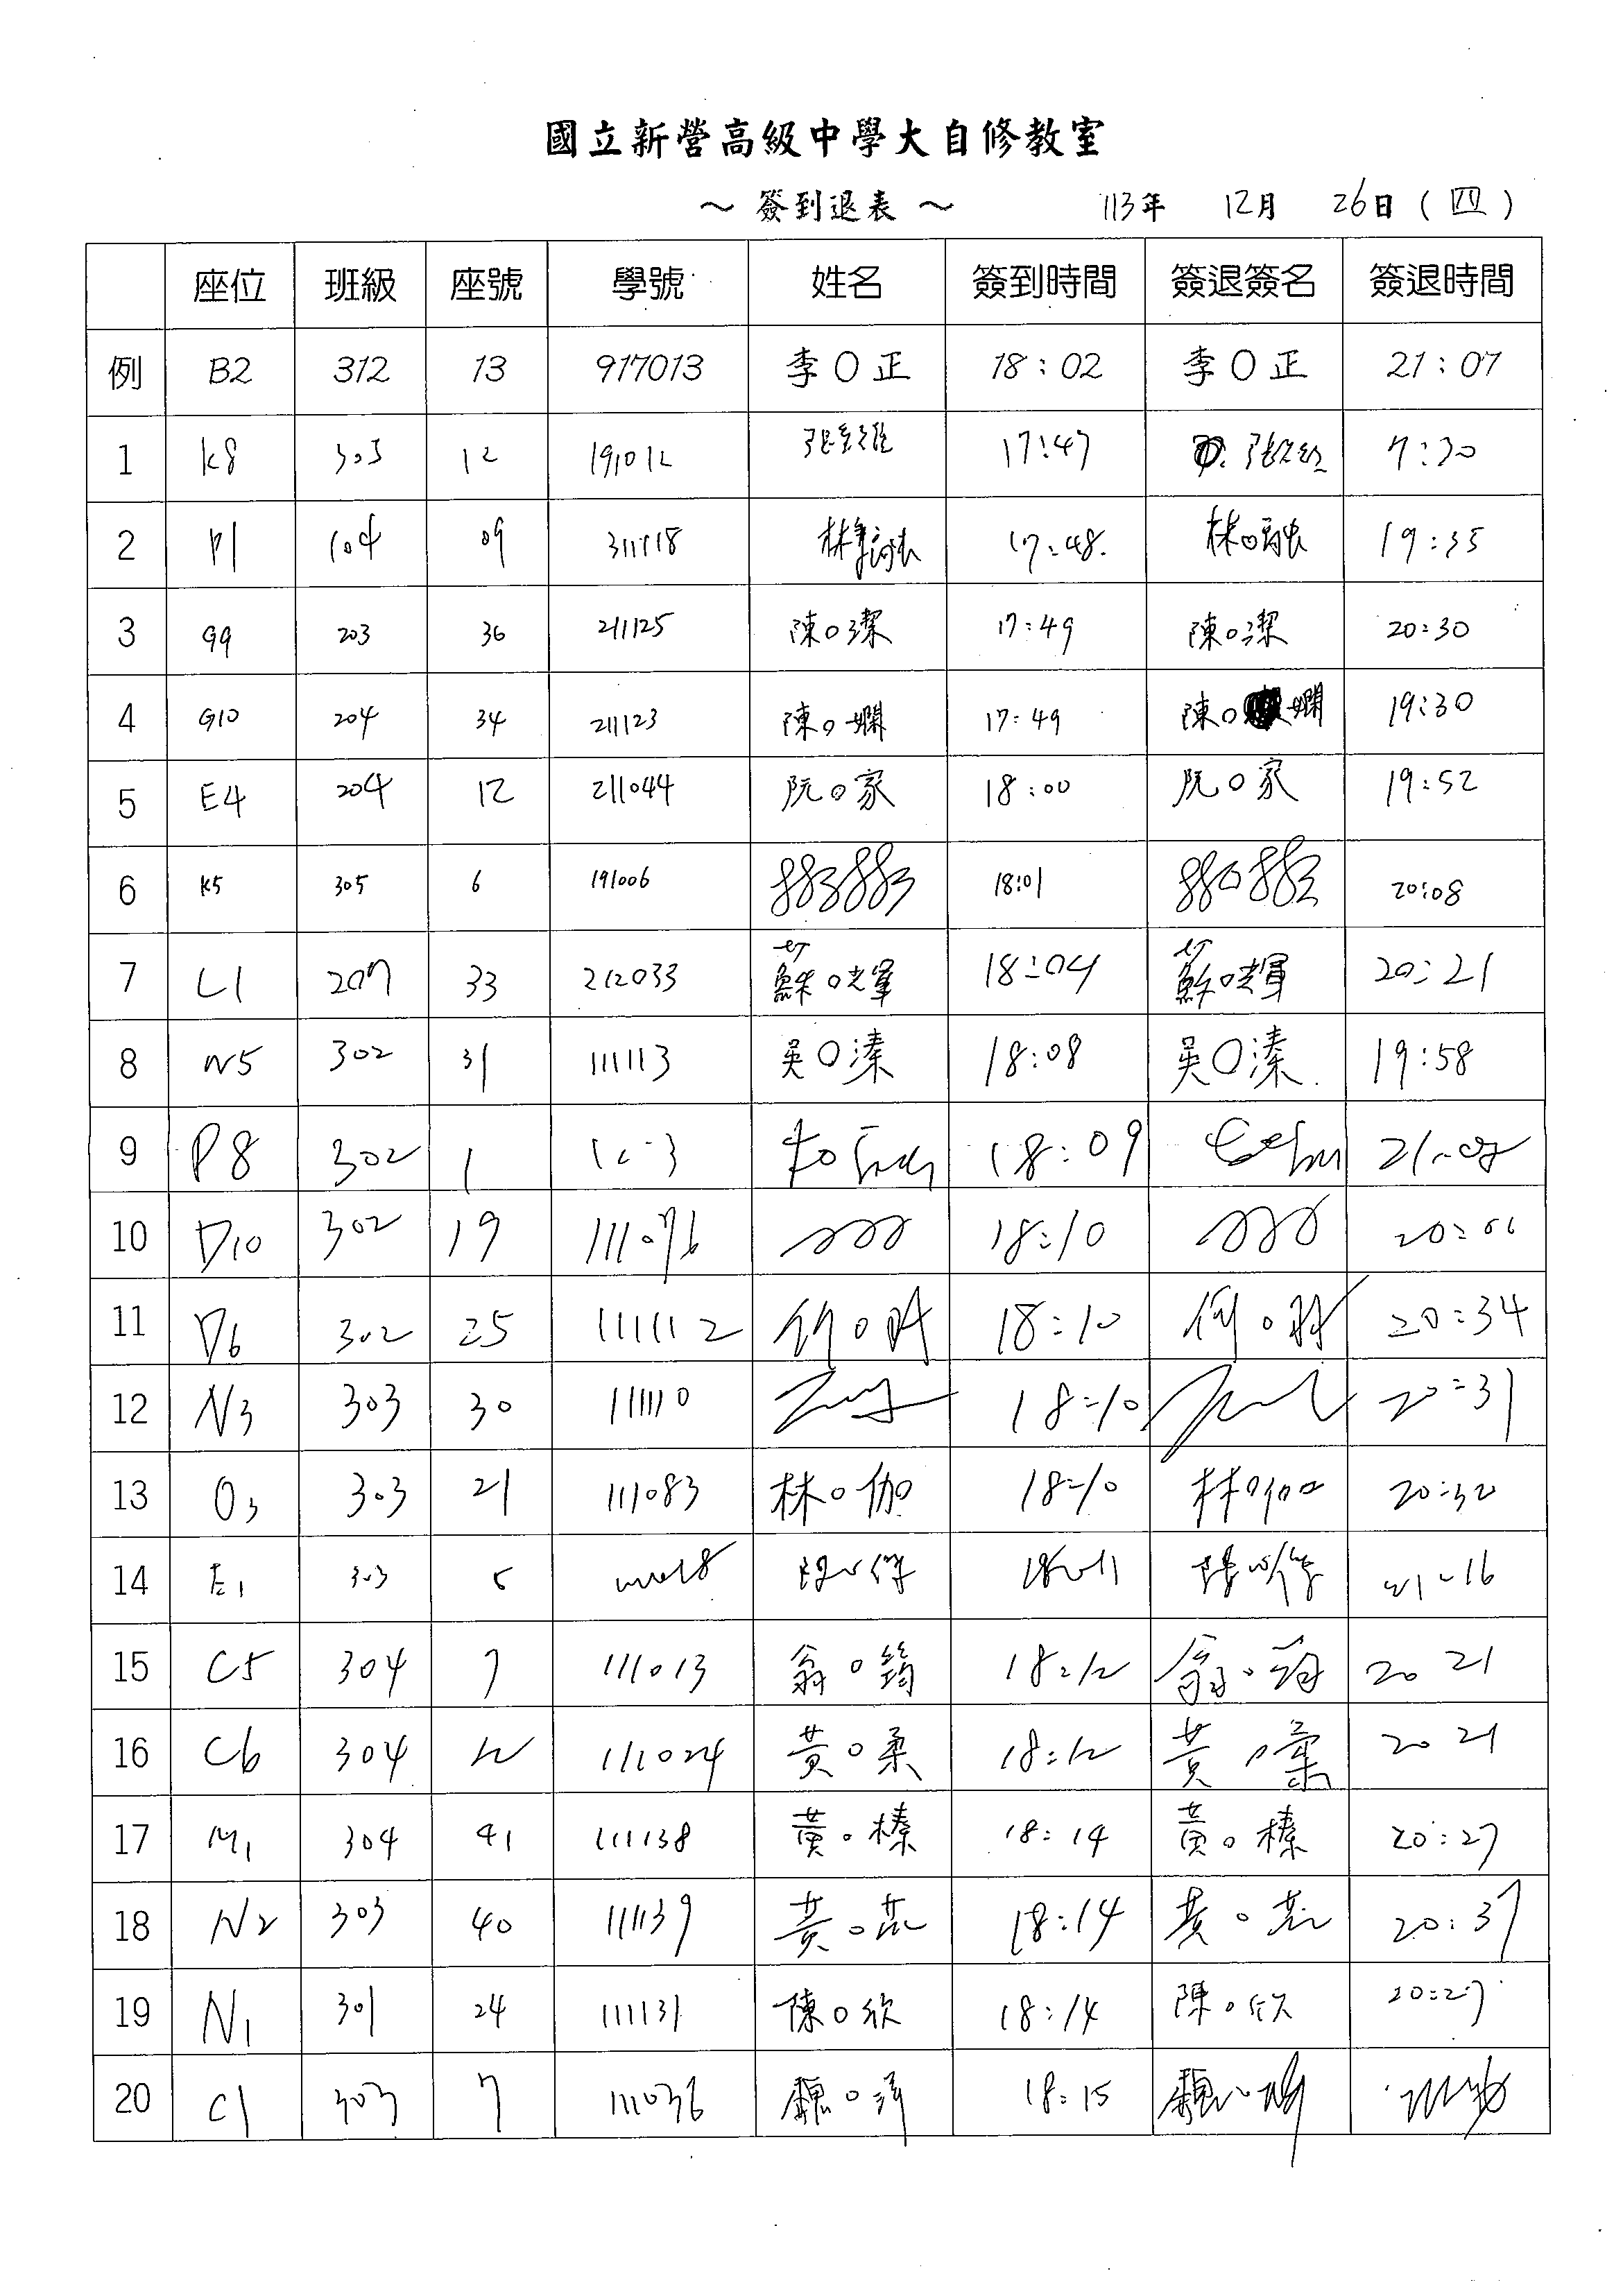 國立新營高級中學大自修教室
～ 簽到退表 ～ 113年 12月 26日 ( 四 )
座位 班級 座號 學號 姓名 簽到時間 簽退簽名 簽退時間
例 B2 312 13 917013 李〇正 18:02 李〇正 21:07
1 K8 303 12 191012 17:47 7:30
2 P1 104 09 311118 17:48. 林〇融 19:35
3 G9 203 36 211125 陳〇潔 17:49 陳〇潔 20:30
4 G10 204 34 211123 陳〇嫻 17:49 陳〇嫻 19:30
5 E4 204 12 211044 阮〇家 18:00 阮〇家 19:52
6 K5 305 6 191006 18:01 20:08
7 L1 207 33 212033 蘇〇輝 18:04 蘇〇輝 20:21
8 N5 302 31 111113 吳〇溱 18:08 吳〇溱 19:58
9 P8 302 1 18:09
10 D10 302 19 111076 18:10
11 D6 302 25 111112 18:10 何〇 20:34
12 N3 303 30 111110 18:10 20:31
13 O3 303 21 111083 林〇伽 18:10 林〇伽 20:32
14 E1 303 18:11 21:16
15 C5 304 7 111013 翁〇筠 18:12 翁〇筠 20 21
16 C6 304 12 111024 黃〇柔 18:12 黃〇柔 20 21
17 M1 304 41 111138 黃〇榛 18:14 黃〇榛 20:27
18 N2 303 40 111139 黃〇 18:14 黃〇 20:37
19 N1 301 24 111131 陳〇欣 18:14 陳〇欣 20:27
20 C1 303 7 111036 18:15